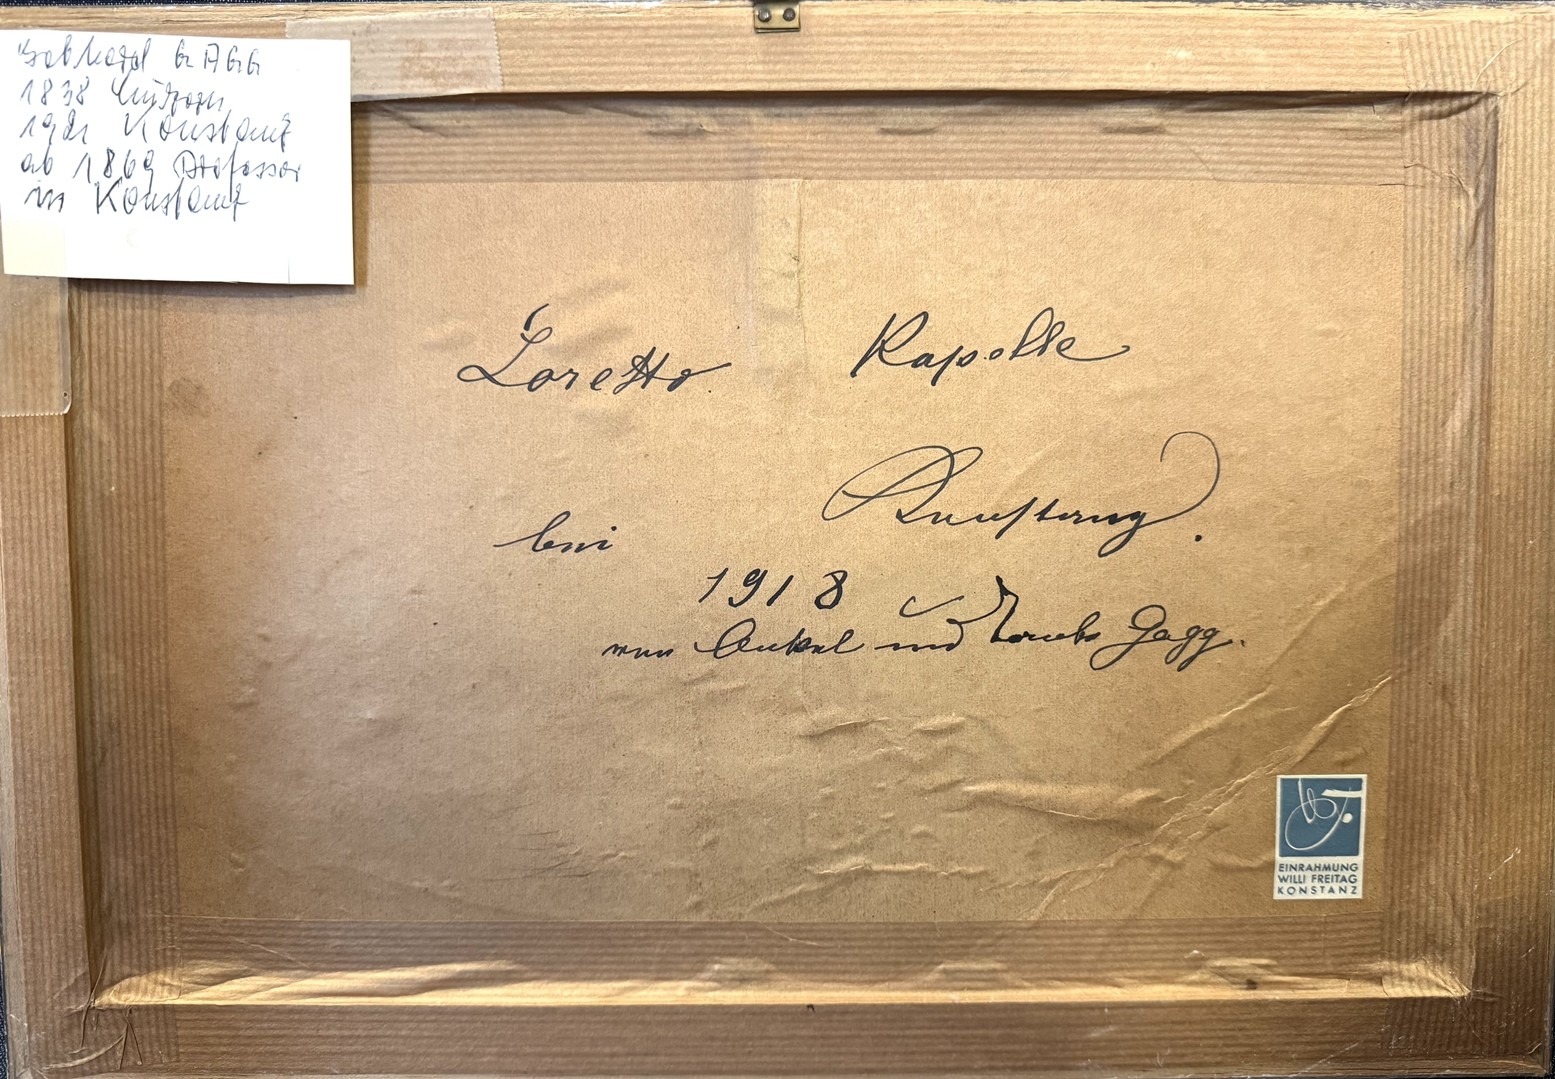 Gebhard GAGG
1838
1921 Konstanz
ab 1869 Professor
in Konstanz
Loretto Kapelle
bei Konstanz.
1918
von Onkel und Gagg.
EINRAHMUNG
WILLI FREITAG
KONSTANZ